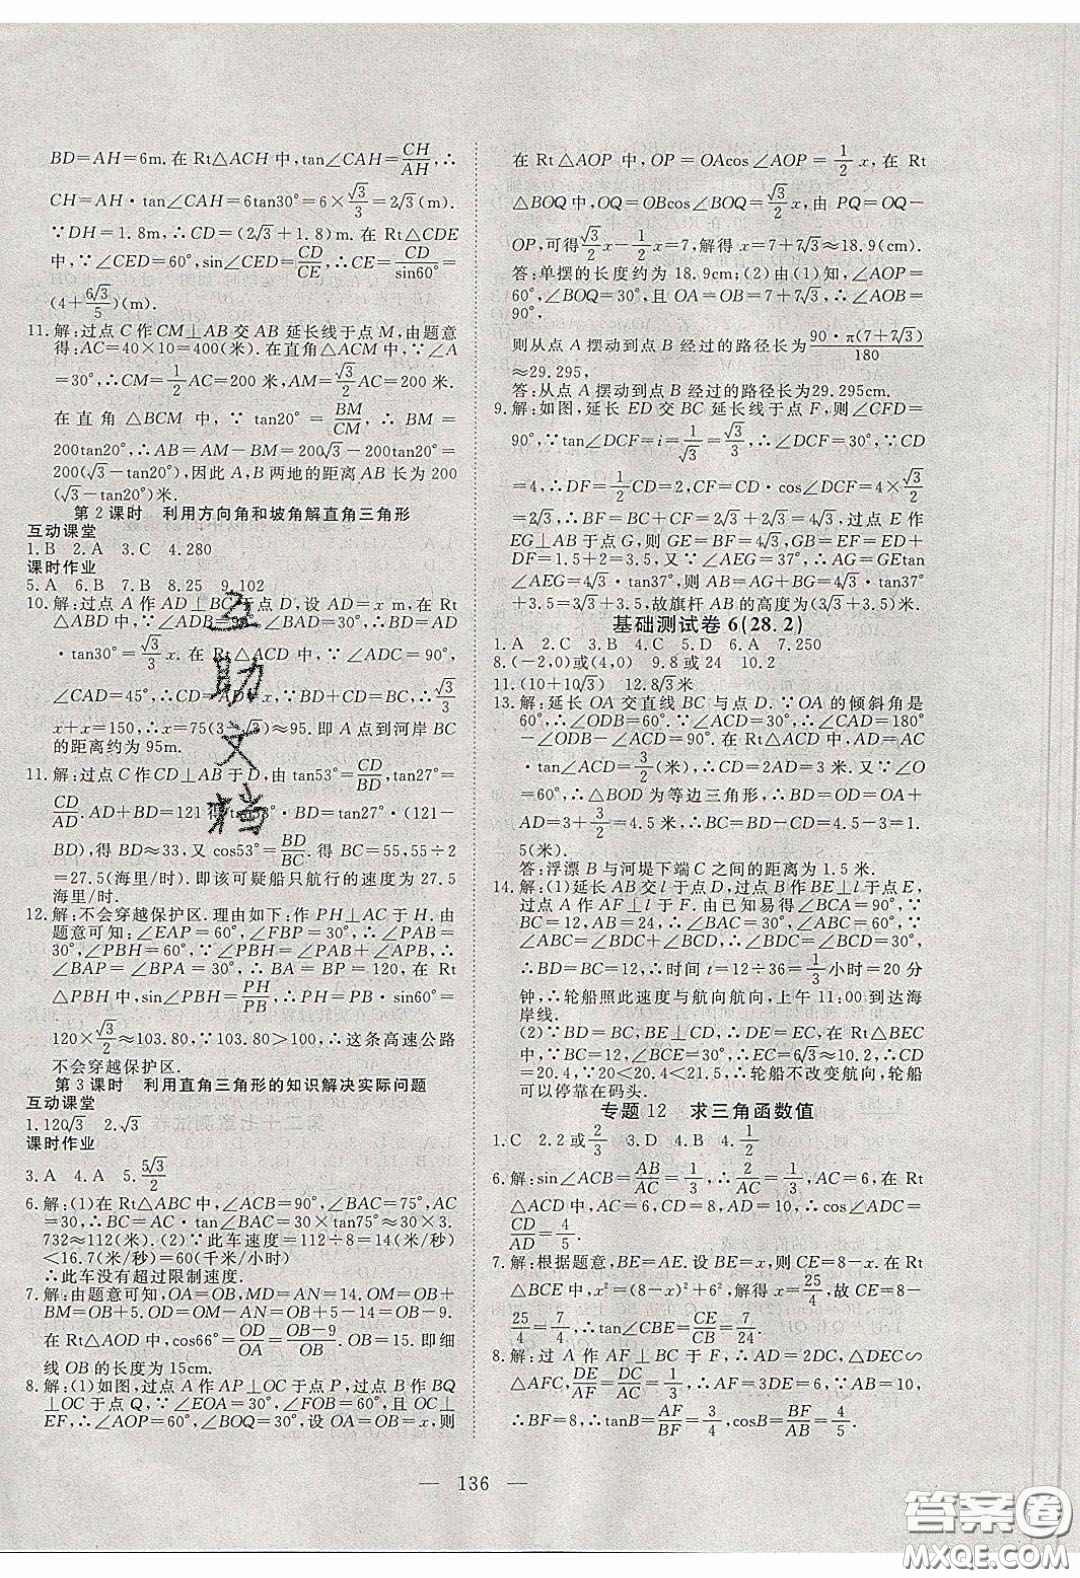 BD=AH=6m. 在 Rt△ACH 中,tan∠CAH=CH/AH,∴
CH=AH·tan∠CAH=6tan30°=6×√3/3=2√3(m).
∵DH=1.8m,∴CD=(2√3+1.8)m. 在 Rt△CDE
中,∵∠CED=60°,sin∠CED=CD/CE,∴CE=CD/sin60°=
(4+6√3/5)(m).
11.解:过点 C 作 CM⊥AB 交 AB 延长线于点 M,由题意
得:AC=40×10=400(米). 在直角△ACM 中,∵∠A
=30°,∴CM=1/2AC=200 米,AM=√3/2AC=200√3 米.
在直角△BCM 中,∵ tan20°=BM/CM,∴ BM=
200tan20°,∴AB=AM-BM=200√3-200tan20°=
200(√3-tan20°),因此 A,B 两地的距离 AB 长为 200
(√3-tan20°)米.
第 2 课时 利用方向角和坡角解直角三角形
互动课堂
1.B 2.A 3.C 4.280
课时作业
5.A 6.B 7.B 8.25 9.102
10.解:过点 A 作 AD⊥BC 于点 D,设 AD=x m,在 Rt
△ABD 中,∵∠ADB=90°,
·tan30°=√3/3x. 在 Rt△ACD 中,∵∠ADC=90°,
∠CAD=45°,∴CD=AD=x. ∵BD+CD=BC,∴√3/3
x+x=150,∴x=75(3-√3)≈95. 即 A 点到河岸 BC
的距离约为 95m.
11.解:过点 C 作 CD⊥AB 于 D,由 tan53°=CD/BD,tan27°=
CD/AD.AD+BD=121 得 tan53°·BD=tan27°·(121-
BD),得 BD≈33,又 cos53°=BD/BC.∴BC=55,55÷2
=27.5(海里/时). 即该可疑船只航行的速度为 27.5
海里/时.
12.解:不会穿越保护区. 理由如下:作 PH⊥AC 于 H,由
题意可知:∠EAP=60°,∠FBP=30°,∴∠PAB=
30°,∠PBH=60°,∵∠PBH=∠PAB+∠APB,∴
∠BAP=∠BPA=30°,∴BA=BP=120,在 Rt
△PBH 中,sin∠PBH=PH/PB,∴PH=PB·sin60°=
120×√3/2≈103.80,∵103.80>100,∴这条高速公路
不会穿越保护区.
第 3 课时 利用直角三角形的知识解决实际问题
互动课堂
1.120√3 2.√3
课时作业
3.A 4.A 5.5√3/2
6.解:(1)在 Rt△ABC 中,∠ACB=90°,∠BAC=75°,AC
=30,∴BC=AC·tan∠BAC=30×tan75°≈30×3.
732≈112(米). (2)∵此车速度=112÷8=14(米/秒)
<16.7(米/秒)=60(千米/小时)
∴此车没有超过限制速度.
7.解:由题意可知,OA=OB,MD=AN=14.OM=OB+
BM=OB+5. OD=OM-AN=OB+5-14=OB-9.
在 Rt△AOD 中,cos66°=OD/OA=OB-9/OB. OB=15. 即细
线 OB 的长度为 15cm.
8.解:(1)如图,过点 A 作 AP⊥OC 于点 P,过点 B 作 BQ
⊥OC 于点 Q,∵∠EOA=30°,∠FOB=60°,且 OC⊥
EF,∴∠AOP=60°,∠BOQ=30°,设 OA=OB=x,则
在 Rt△AOP 中,OP=OAcos∠AOP=1/2x,在 Rt
△BOQ 中,OQ=OBcos∠BOQ=√3/2x,由 PQ=OQ-
OP,可得√3/2x-1/2x=7,解得 x=7+7√3≈18.9(cm).
答:单摆的长度约为 18.9cm;(2)由(1)知,∠AOP=
60°,∠BOQ=30°,且 OA=OB=7+7√3,∴∠AOB=
90°,
则从点 A 摆动到点 B 经过的路径长为90·π(7+7√3)/180
≈29.295,
答:从点 A 摆动到点 B 经过的路径长为29.295cm.
9.解:如图,延长 ED 交 BC 延长线于点 F,则∠CFD=
90°,∵tan∠DCF=i=1/√3=√3/3,∴∠DCF=30°,∵CD
=4,∴DF=1/2CD=2,CF=CD·cos∠DCF=4×√3/2
=2√3,∴BF=BC+CF=2√3+2√3=4√3,过点 E 作
EG⊥AB 于点 G,则 GE=BF=4√3,GB=EF=ED+
DF=1.5+2=3.5,又∵∠AEG=37°,∴AG=GEtan
∠AEG=4√3·tan37°,则 AB=AG+BG=4√3·tan37°
+3.5=4√3·tan37°+3.5,故旗杆 AB 的高度为(4√3tan37°+3.5)米.
基础测试卷 6(28.2)
1.A 2.C 3.B 4.C 5.D 6.A 7.250
8.(-2,0)或(4,0) 9.8 或 24 10.2
11.(10+10√3) 12.8√3米
13.解:延长 OA 交直线 BC 与点 D.∵OA 的倾斜角是
60°,∴∠ODB=60°.∵∠ACD=30°,∴∠CAD=180°
-∠ODB-∠ACD=90°. 在 Rt△ACD 中,AD=AC
·tan∠ACD=3/2米,∴CD=2AD=3 米. 又∵∠O
=60°,∴△BOD 为等边三角形,∴BD=OD=OA+
AD=3+3/2=4.5 米,∴BC=BD-CD=4.5-3=1.
5(米).
答:浮漂 B 与河堤下端 C 之间的距离为 1.5 米.
14.解:(1)延长 AB 交 l 于点 D,过点 B 作 BE⊥l 于点 E,
过点 A 作 AF⊥l 于点 F. 由已知易得∠BCA=90°,∵
BC=12,AB=24,∴∠BAC=30°,∠ABC=60°,∵
∠ABC=∠BDC+∠BCD,∴∠BDC=∠BCD=30°,
∴BD=BC=12,∴时间 t=12÷36=1/3小时=20 分
钟,∴轮船照此速度与航向航向,上午 11:00 到达海
岸线.
(2)∵BD=BC,BE⊥CD,∴DE=EC,在 Rt△BEC
中,∵BC=12,∠BCE=30°,∴BE=6,EC=6√3≈10.2,
∴CD=20.4,∵20<20.4<21.5,∴轮船不改变航向,轮船
可以停靠在码头.
专题 12 求三角函数值
1.C 2.2 或2/3 3.D 4.B 5.1/2
6.解:∵sin∠ACB=AB/AC=1/3,∴2/AC=1/3,∴AC=6,在 Rt
△ACD 中,AC=6,CD=8,∴AD=10,∴cos∠ADC=
CD/AD=4/5.
7.解:根据题意,BE=AE. 设 BE=x,则 CE=8-x. 在 Rt
△BCE 中,x²=(8-x)²+6²,解得 x=25/4,故 CE=8-
25/4=7/4,∴tan∠CBE=CE/CB=7/24.
8.解:过 A 作 AF⊥BC 于 F,∴AD=2DC,△DEC∽
△AFC,DE/AF=DC/AC=1/3,∴AF=3DE=6,∵AB=10,
∴BF=8,∴tanB=AF/BF=3/4,cosB=BF/AB=4/5.
— 136 —
互助文档
答案圈
MXQE.COM